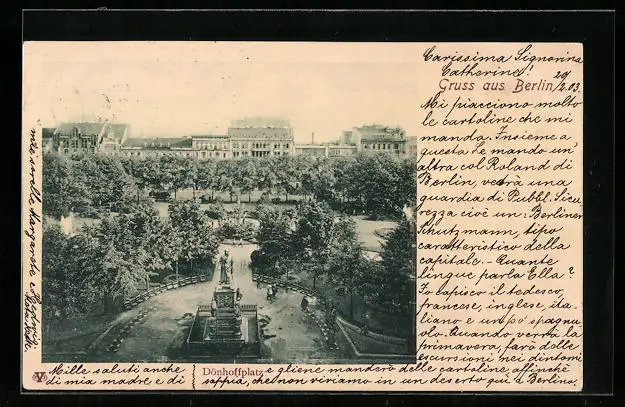 Carissima Signorina
Catherine! 29/2.03.
Gruss aus Berlin
Mi piacciono molto
le cartoline che mi
manda. Insieme a
questa Le mando un'
altra col Roland di
Berlin, vedrà una
guardia di Pubbl. Sicu
rezza cioè un: Berliner
Schutzmann, tipo
caratteristico della
capitale. - Quante
lingue parla Ella?
Io capisco il tedesco,
francese, inglese, ita,
liano e un po' spagnu
olo. Quando verrà la
primavera, farò delle
escursioni nei dintorni
Dönhoffplatz e gliene manderò delle cartoline affinchè
sappia, che non viviamo in un deserto quì a Berlino.
Mille saluti anche
di mia madre e di
mie sorelle Margarete e